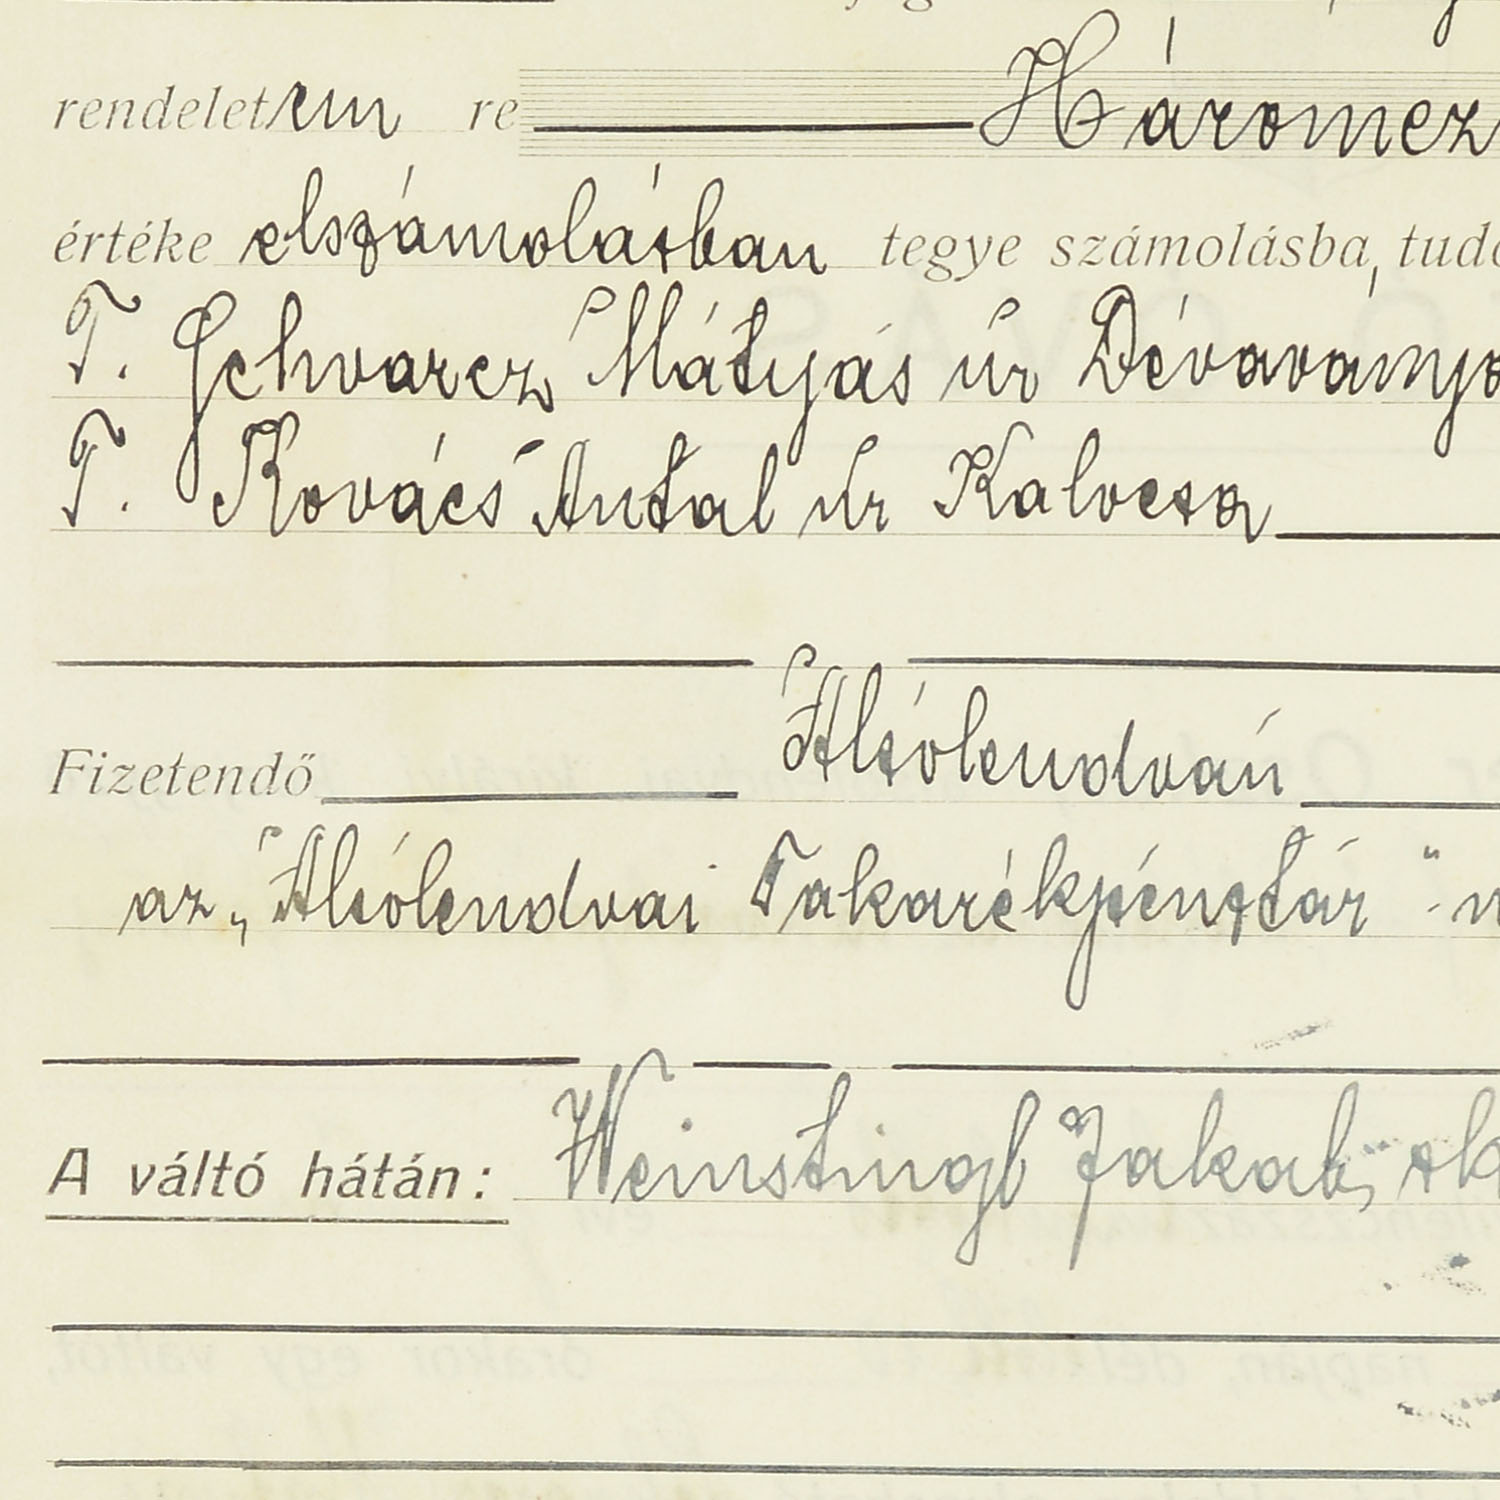 rendelet/em re Háromez
értéke elszámolásban tegye számolásba, tudó
T. Schvarcz Mátyás úr Dévaványa
T. Kovács Antal úr Kalocsa
Alsólendván
Fizetendő
az „Alsólendvai Takarékpénztár"-n
Weinstingl Jakab, sk
A váltó hátán: